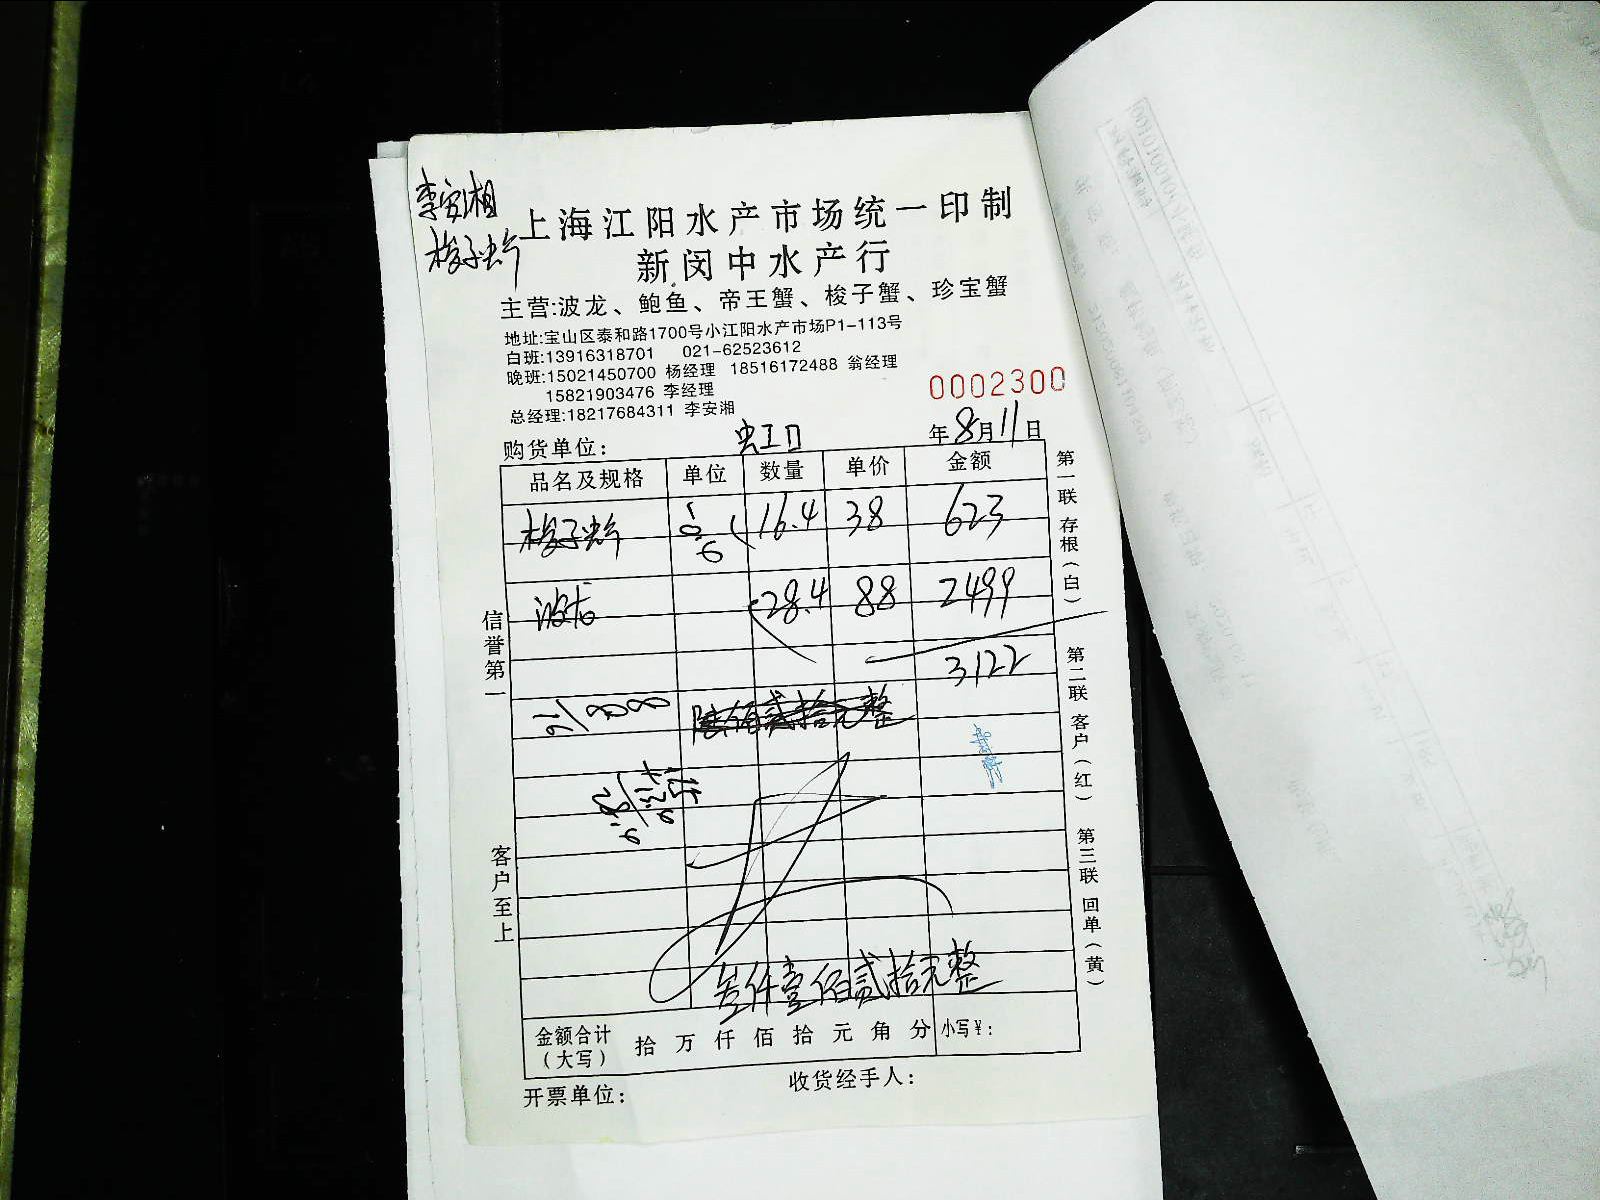 李安湘
梭子蟹
上海江阳水产市场统一印制
新闵中水产行
主营:波龙、鲍鱼、帝王蟹、梭子蟹、珍宝蟹
地址:宝山区泰和路1700号小江阳水产市场P1-113号
白班:13916318701 021-62523612
晚班:15021450700 杨经理 18516172488 翁经理
15821903476 李经理
总经理:18217684311 李安湘
0002300
购货单位: 虹口 年8月11日
品名及规格 单位 数量 单价 金额
梭子蟹 16.4 38 623
波龙 28.4 88 2499
3122
陆佰贰拾元整
叁仟壹佰贰拾元整
金额合计(大写) 拾 万 仟 佰 拾 元 角 分 小写¥:
开票单位: 收货经手人:
信誉第一
客户至上
第一联 存根(白)
第二联 客户(红)
第三联 回单(黄)